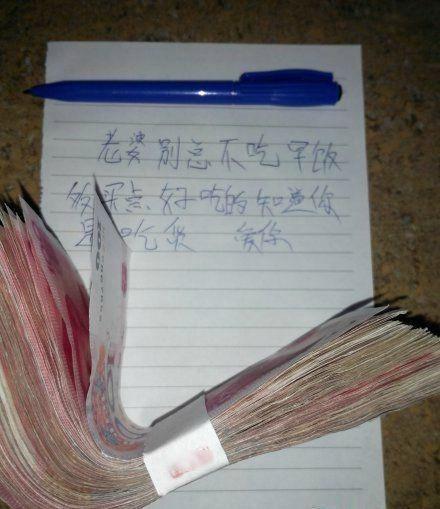 老婆别总不吃早饭
多买点好吃的知道你
是 吃货 爱你